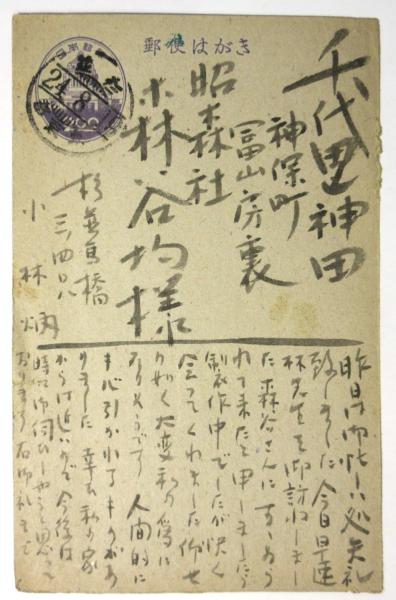 郵便はがき
千代田区神田
神保町
冨山房裏
昭森社
森谷均様
杉並馬橋
三四八
小林
24.8
昨日は御忙しい処失礼
致しました 今日早速
林先生を御訪ねしまし
た 森谷さんにすゝめら
れて来たと申しましたら
制作中でしたが快く
会ってくれました 仰せ
の如く大変私の為に
なりそうです 人間的に
も心引かれるものがあ
りました 幸い私の家
からは近いので今後は
時々御伺いしやうと思って
おります 右御礼まで